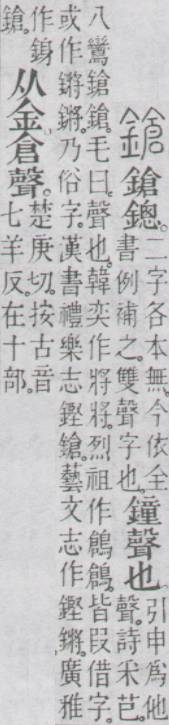 鎗 鎗鏓。二字各本無。今依全書例補之。雙聲字也。鐘聲也。引申爲他聲。詩釆芑。
八鸞鎗鎗。毛曰。聲也。韓奕作將將。烈祖作鶬鶬。皆叚借字。或作鏘鏘。乃俗字。漢書禮樂志鏗鎗。藝文志作鏗鏘。廣雅
作鎗。从金倉聲。楚庚切。按古音七羊反。在十部。